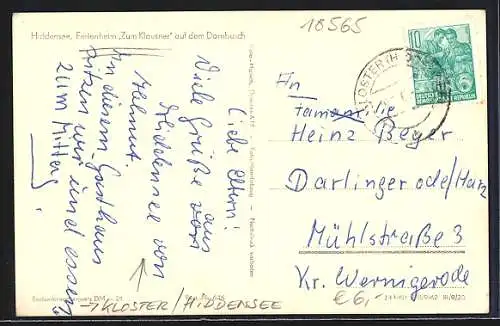 Hiddensee, Ferienheim „Zum Klausner" auf dem Dornbusch
18565
Liebe Eltern!
Viele Grüße
aus
Hiddensee von
Helmut.
In diesem Gasthaus
sitzen wir und essen
zum Mittag
→ KLOSTER/HIDDENSEE
10
KLOSTER (H
An
Familie
Heinz Beyer
Darlingerode/Harz
Mühlstraße 3
Kr. Wernigerode
€ 6,-